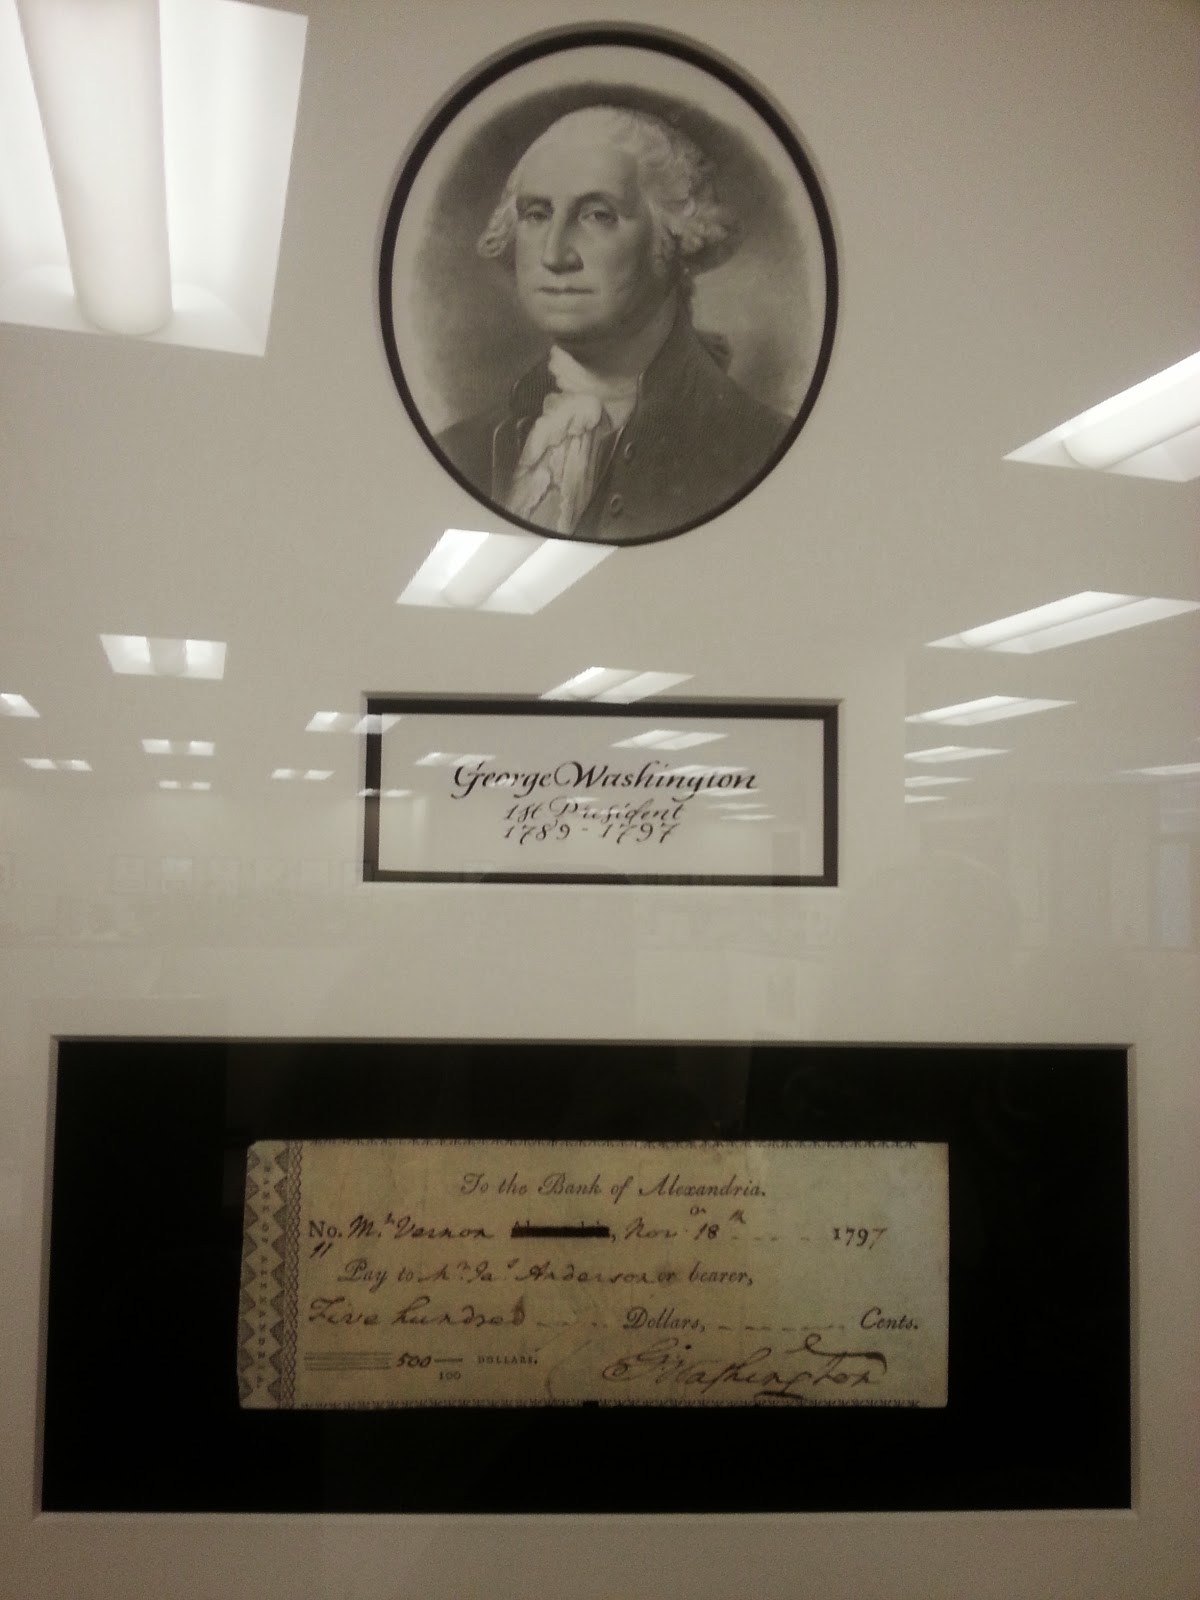 George Washington
1st President
1789 - 1797
BANK OF ALEXANDRIA.
To the Bank of Alexandria.
No. Mt. Vernon , Nov 18th 1797
11
Pay to Mr. Jas Anderson or bearer,
Five hundred Dollars, Cents.
500 DOLLARS.
100
G Washington